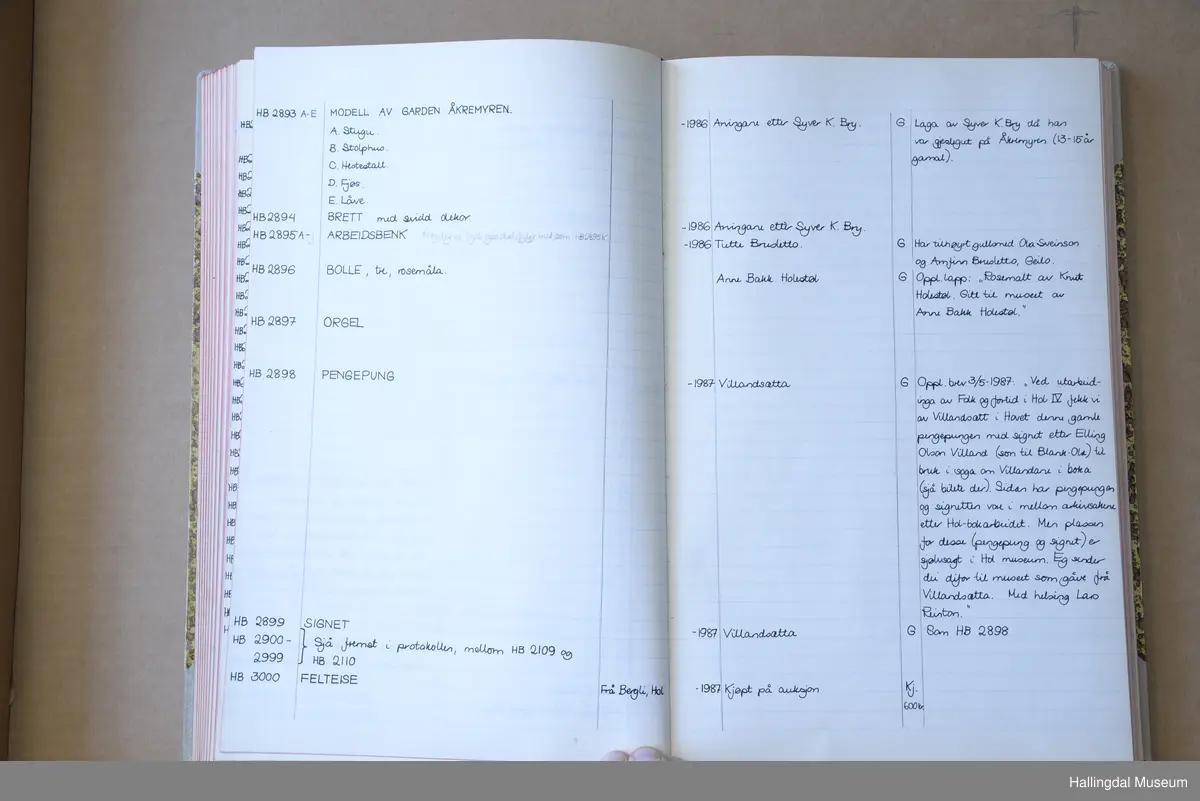 HB 2893 A-E MODELL AV GARDEN ÅKREMYREN.
A. Stugu.
B. Stolphus.
C. Hestestall.
D. Fjøs.
E. Låve.
HB 2894 BRETT med svidd dekor.
HB 2895 A- ARBEIDSBENK
HB 2896 BOLLE, tre, rosemåla.
HB 2897 ORGEL
HB 2898 PENGEPUNG
HB 2899 SIGNET
HB 2900- Sjå fremst i protokollen, mellom HB 2109 og
2999 HB 2110
HB 3000 FELTEISE
Frå Bergli, Hol
-1986 Arvingane etter Syver K. Bry. G Laga av Syver K. Bry då han
var gjeslegut på Åkremyren (13-15 år
gamal).
-1986 Arvingane etter Syver K. Bry.
-1986 Tutte Brusletto. G Har tilhøyrt gullsmed Ola Sveinson
og Arnfinn Brusletto, Geilo.
Anne Bakk Holestøl G Oppl. lapp: "Rosemalt av Knut
Holestøl. Gitt til museet av
Anne Bakk Holestøl."
-1987 Villandsætta G Oppl. brev 3/5-1987: "Ved utarbeid-
inga av Folk og fortid i Hol IV fekk vi
av Villandsætt i Hovet denne gamle
pengepungen med signet etter Elling
Olson Villand (son til Blank-Ola) til
bruk i soga om Villandane i boka
(sjå bilete der). Sidan har pengepungen
og signetten vore i mellom arkivsakene
etter Hol-bokarbeidet. Men plassen
for desse (pengepung og signet) er
sjølvsagt i Hol museum. Eg sender
dei difor til museet som gåve frå
Villandsætta. Med helsing Lars
Reinton."
-1987 Villandsætta G Som HB 2898
-1987 Kjøpt på auksjon Kj.
600 kr
Hallingdal Museum